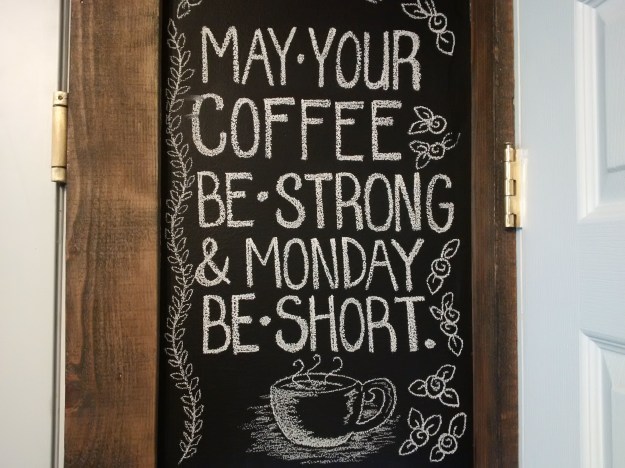 MAY·YOUR
COFFEE
BE·STRONG
& MONDAY
BE·SHORT.